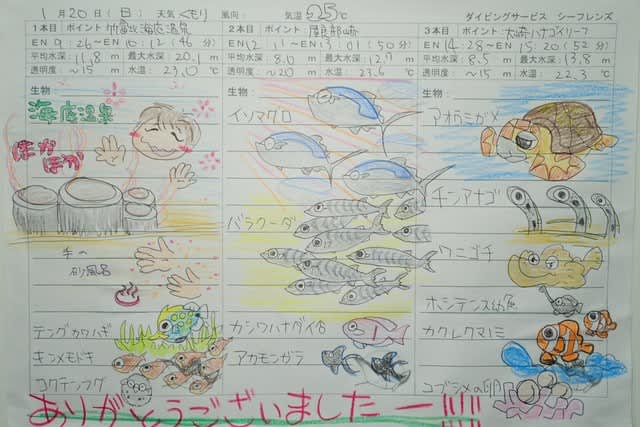 1月20日(日) 天気 くもり 風向: 気温 25℃ ダイビングサービス シーフレンズ
1本目 ポイント 竹富北海底温泉
EN 9:26~10:12 (46分)
平均水深: 11.8m 最大水深: 20.1m
透明度: ~15m 水温: 23.10℃
生物:
海底温泉
ぽかぽか
手の
砂風呂
テングカワハギ
キンメモドキ
コクテンフグ
2本目 ポイント: 屋良部崎
EN 12:11~13:01 (50分)
平均水深: 8.0m 最大水深: 12.7m
透明度: ~20m 水温: 23.6℃
生物:
イソマグロ
バラクーダ
カシワハナダイ
アカモンガラ
3本目 ポイント: 大崎ハナゴイリーフ
EN 14:28~15:20 (52分)
平均水深: 8.5m 最大水深: 13.8m
透明度: ~15m 水温: 22.3℃
生物:
アオウミガメ
チンアナゴ
ワニゴチ
ホシテンス幼魚
カクレクマノミ
コブシメの卵
ありがとうございましたー!!!!